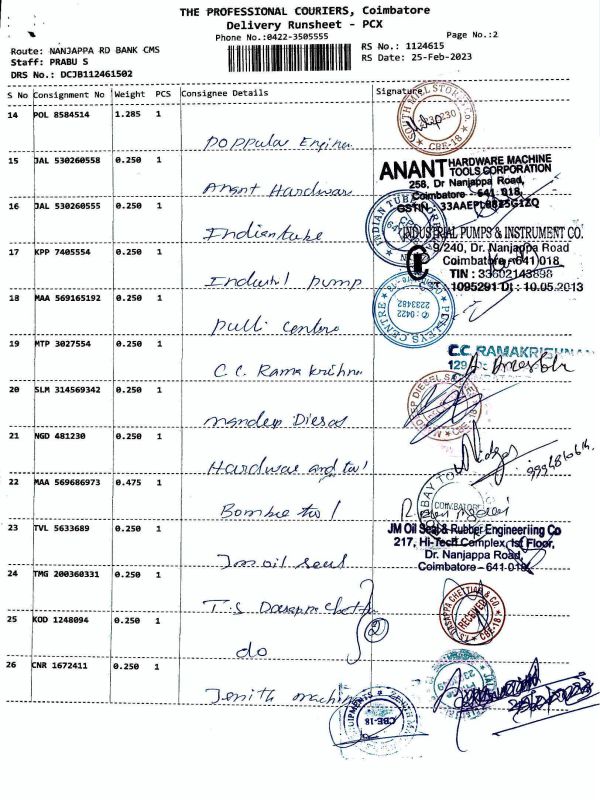 THE PROFESSIONAL COURIERS, Coimbatore
Delivery Runsheet - PCX
Phone No.:0422-3505555
Page No.:2
Route: NANJAPPA RD BANK CMS
Staff: PRABU S
DRS No.: DCJB112461502
RS No.: 1124615
RS Date: 25-Feb-2023
S No Consignment No Weight PCS Consignee Details Signature
14 POL 8584514 1.285 1
SOUTH
CBE-18
Poppular Engin
15 JAL 530260558 0.250 1
ANANT HARDWARE MACHINE
TOOLS CORPORATION
258, Dr Nanjappa Road,
Coimbatore - 641 018.
Anant Hardwar
16 JAL 530260555 0.250 1
INDIAN TUBE
Indiantube
INDUSTRIAL PUMPS & INSTRUMENT CO.
17 KPP 7405554 0.250 1
9/240, Dr. Nanjappa Road
Coimbatore - 641 018
TIN : 33602143898
CST : 1095291 Dt : 10.05.2013
Industil pump
18 MAA 569165192 0.250 1
PULLEYS CENTRE
0422
2233482
pulli centre
19 MTP 3027554 0.250 1
C.C. RAMAKRISHNAN
129
C.C. Rama Krishna
20 SLM 314569342 0.250 1
Mandep Diesas
21 NGD 481230 0.250 1
Hardwar and tol
22 MAA 569686973 0.475 1
BOMBAY TO
COIMBATORE
Bombee tol
23 TVL 5633689 0.250 1
JM Oil Seal & Rubber Engineeriing Co
217, Hi-Tech Complex, Ist Floor,
Dr. Nanjappa Road,
Coimbatore - 641 018
Jm oil seal
24 TMG 200360331 0.250 1
T.S. DASAPPA CHETTIAR & CO.
RECEIVED
CBE-18
T.S Dasappa Chett
25 KOD 1248094 0.250 1
2
do
26 CNR 1672411 0.250 1
Jenith machin
CBE-18